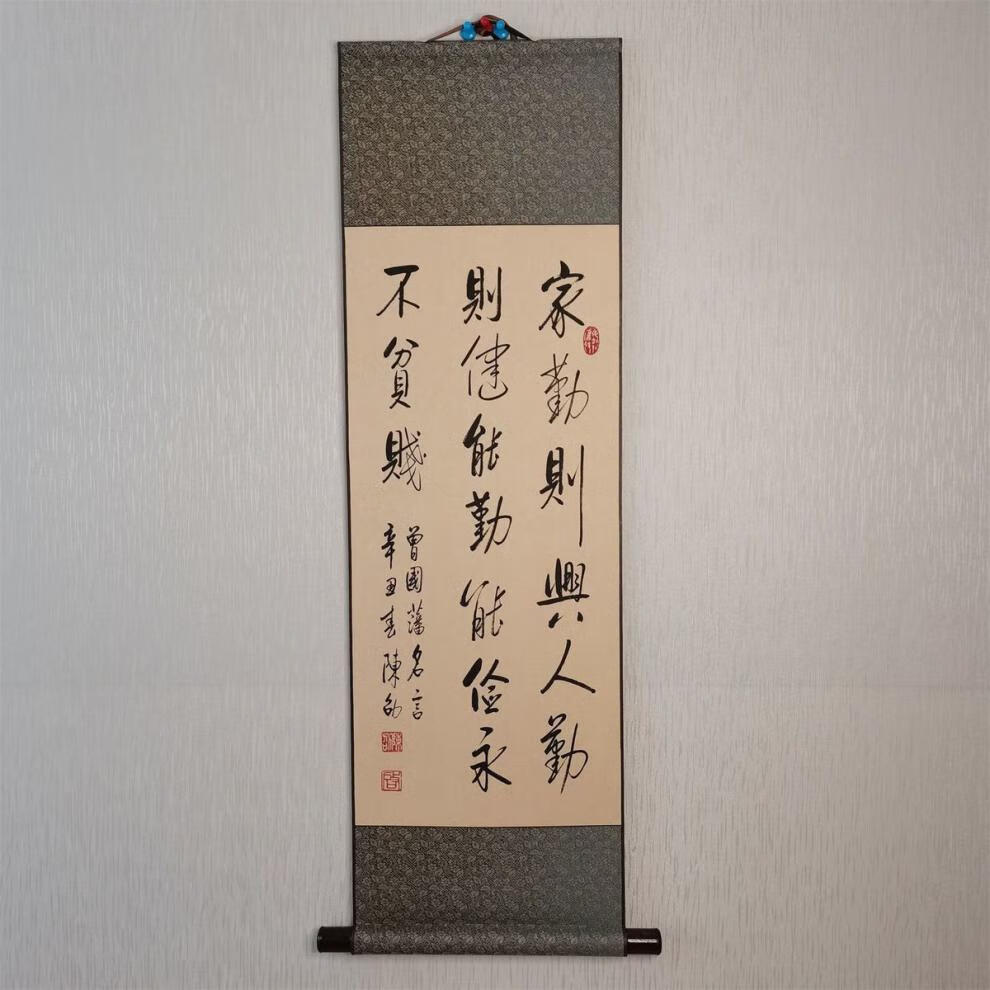 家勤則興人勤
則健能勤能俭永
不貧賤
曾國藩名言
辛丑春陳劭